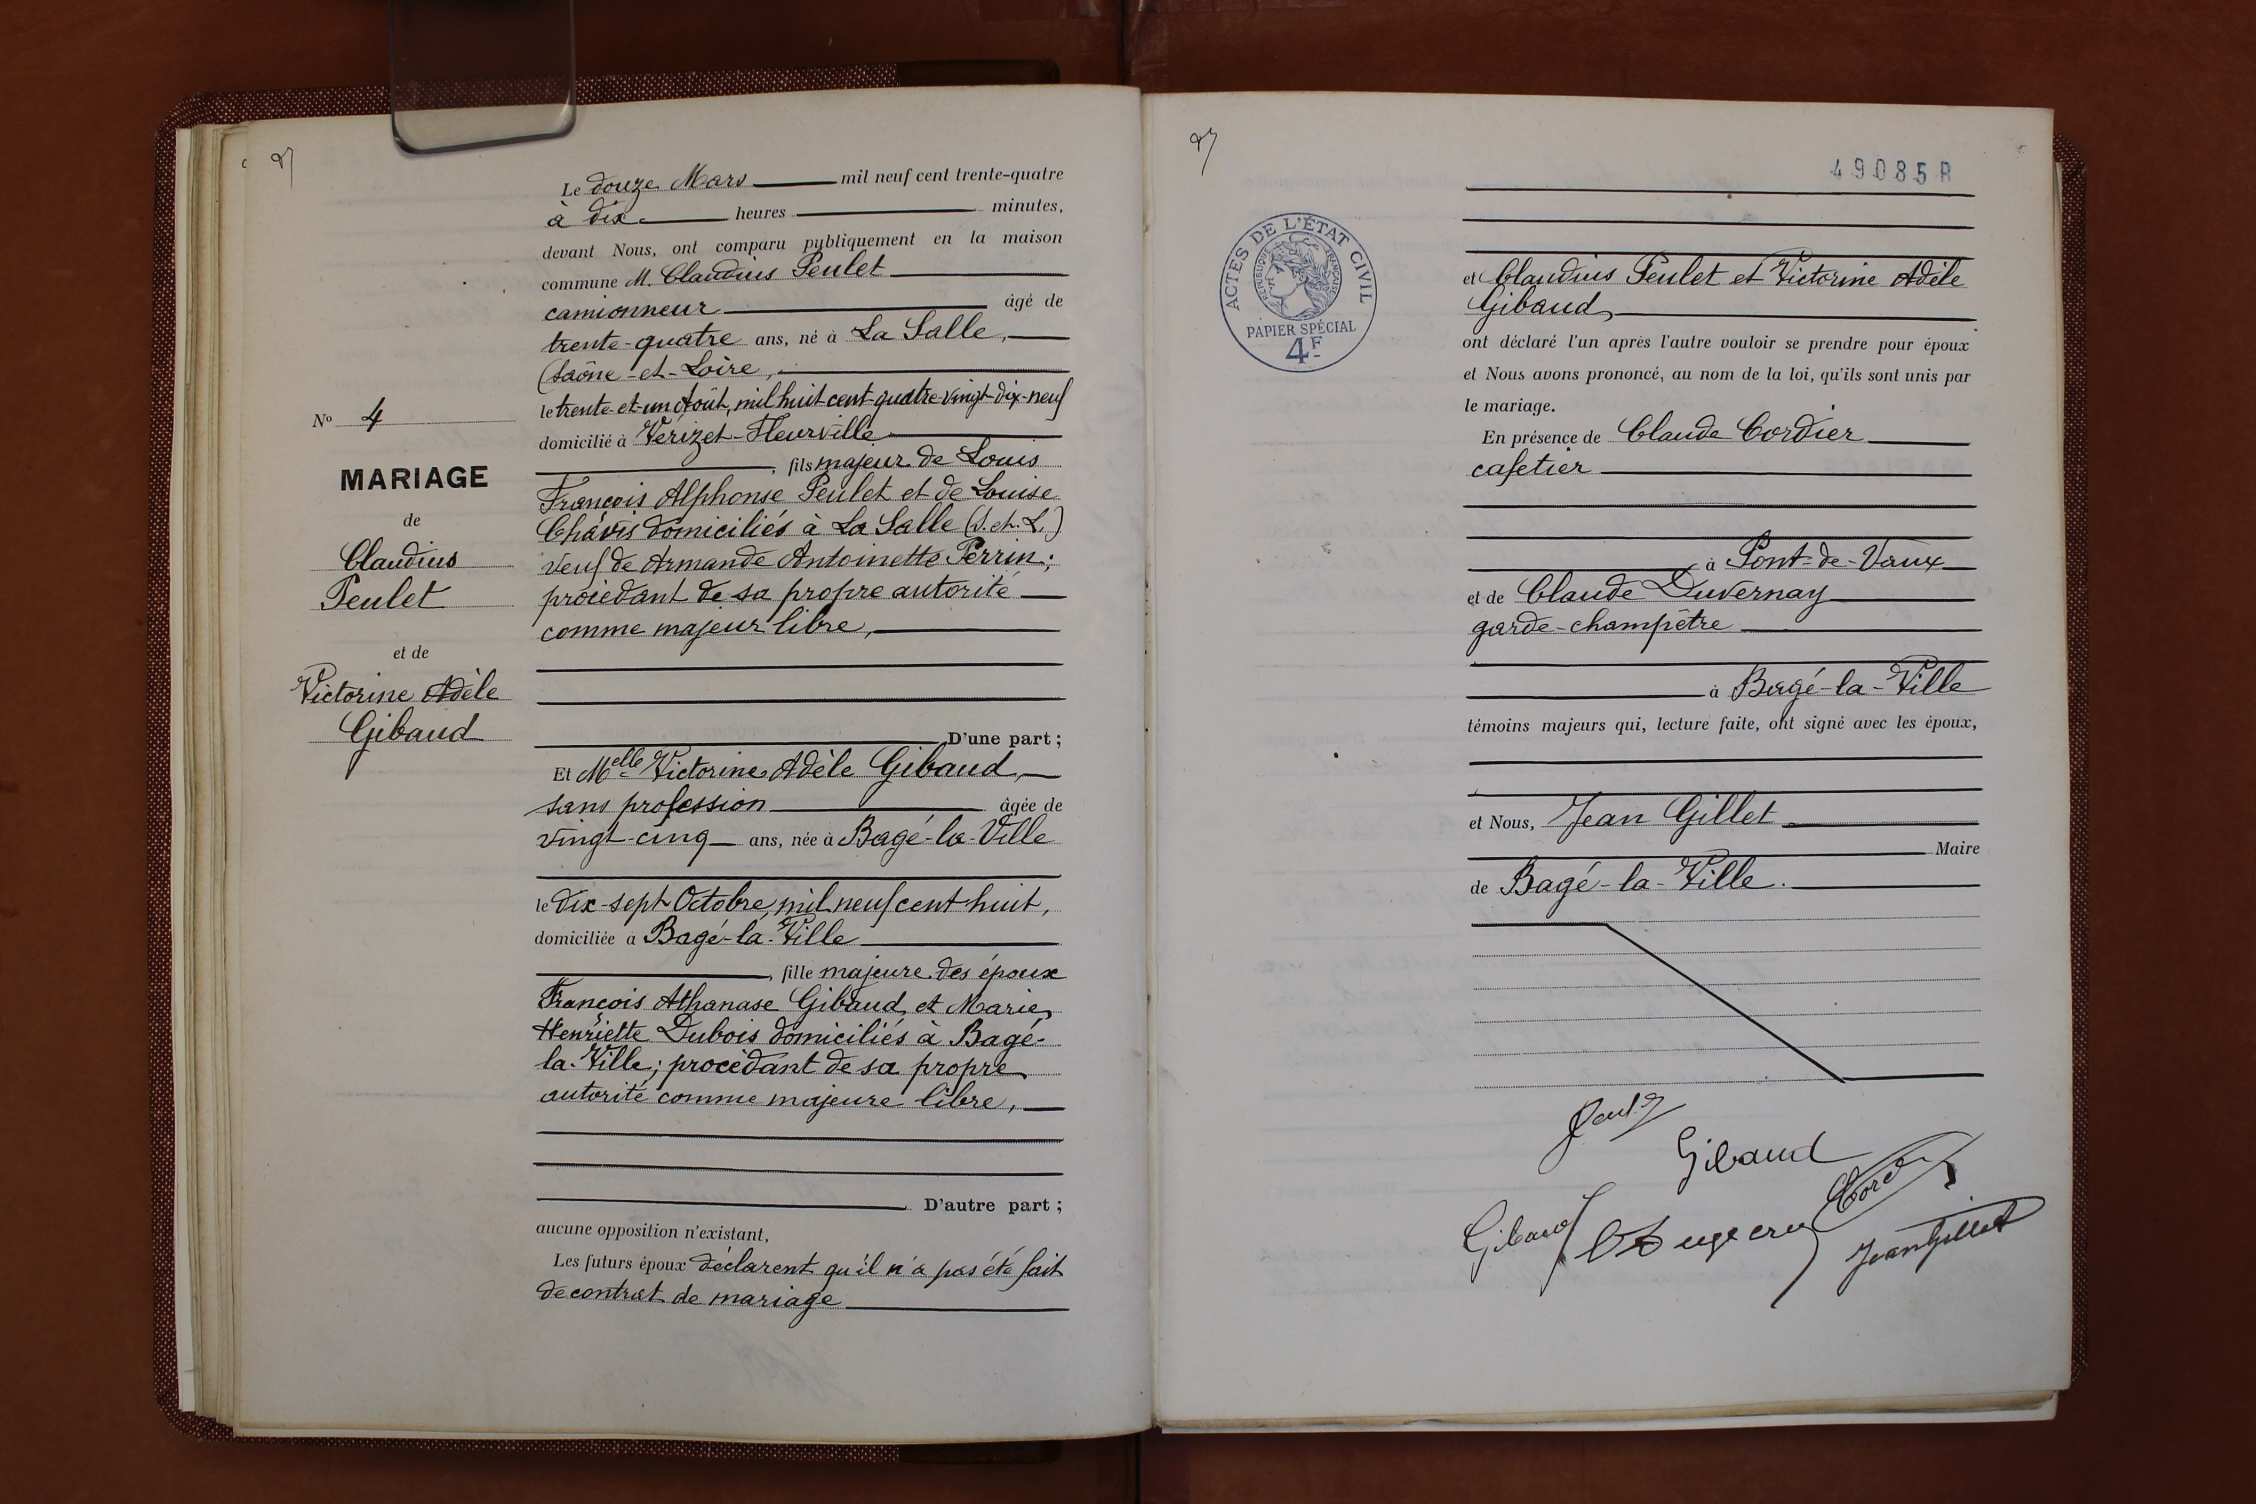 Le douze Mars mil neuf cent trente-quatre
à dix heures minutes,
devant Nous, ont comparu publiquement en la maison
commune M. Claudius Peulet
camionneur âgé de
trente-quatre ans, né à La Salle,
(Saône-et-Loire,
le trente-et-un Août, mil huit cent quatre-vingt-dix-neuf
domicilié à Vérizet-Fleurville
, fils majeur de Louis
François Alphonse Peulet et de Louise
Chavis domiciliés à La Salle (S. et. L.)
veuf de Armande Antoinette Perrin;
procédant de sa propre autorité
comme majeur libre,
D'une part;
Et Melle Victorine Adèle Gibaud,
sans profession âgée de
vingt-cinq ans, née à Bagé-la-Ville
le dix-sept Octobre, mil neuf cent huit,
domiciliée à Bagé-la-Ville
, fille majeure des époux
François Athanase Gibaud et Marie
Henriette Dubois domiciliés à Bagé-
la-Ville; procédant de sa propre
autorité comme majeure libre,
D'autre part;
aucune opposition n'existant,
Les futurs époux déclarent qu'il n'a pas été fait
de contrat de mariage
No 4
MARIAGE
de
Claudius
Peulet
et de
Victorine Adèle
Gibaud
49085R
ACTES DE L'ÉTAT CIVIL
RÉPUBLIQUE FRANÇAISE
PAPIER SPÉCIAL
4F
et Claudius Peulet et Victorine Adèle
Gibaud,
ont déclaré l'un après l'autre vouloir se prendre pour époux
et Nous avons prononcé, au nom de la loi, qu'ils sont unis par
le mariage.
En présence de Claude Cordier
cafetier
à Pont-de-Vaux
et de Claude Duvernay
garde-champêtre
à Bagé-la-Ville
témoins majeurs qui, lecture faite, ont signé avec les époux,
et Nous, Jean Gillet
Maire
de Bagé-la-Ville.
Gibaud
Gibaud
Jean Gillet